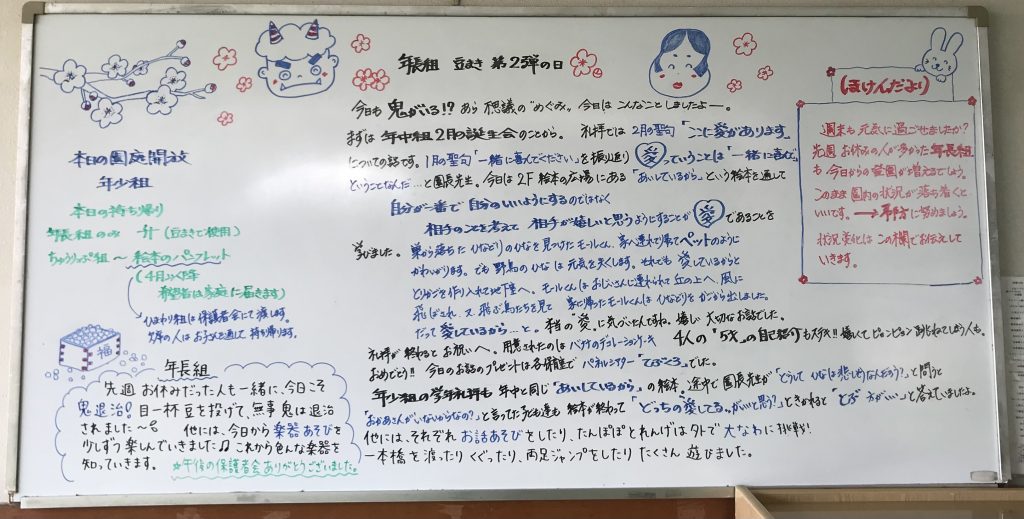 年長組 豆まき 第2弾の日
今日も 鬼がいる!? あら不思議の"めぐみ"。今日は こんなことしましたよー。
まずは 年中組2月の誕生会のことから。礼拝では 2月の聖句「ここに愛があります」
についての話です。1月の聖句「一緒に喜んでください」を振り返り 愛 っていうことは「一緒に喜ぶ」
ということなんだ…と園長先生。今日は2F 絵本の広場にある「あいしているから」という絵本を通して
自分が一番で 自分のいいようにするのではなく
相手のことを考えて 相手が嬉しいと思うようにすることが 愛 であることを
学びました。
巣から落ちた ひなどりのひなを見つけたモールくん。家へ連れて帰ってペットのように
かわいがります。でも 野鳥のひなは 元気を失くします。それでも 愛しているからと
とりかごを作り入れて地下室へ。モールくんは おじいさんに連れられて 丘の上へ。風に
飛ばされ、又 飛ぶ鳥たちを見て 家に帰ったモールくんは ひなどりを かごから出しました。
だって 愛しているから…と。本当の"愛"に気づいたんですね。嬉しい 大切なお話でした。
礼拝が 終わると お祝いへ。用意されたのは バナナのデコレーションケーキ 4人の"5才"の自己紹介も大好き!! 嬉しくて ピョンピョン 跳びはねてしまう人も。
おめでとう!! 今日のお話のプレゼントは各保育室で パネルシアター「てぶくろ」でした。
年少組の学年礼拝も 年中と同じ「あいしているから」の絵本、途中で園長先生が「どうして ひなは悲しそうなんだろう?」と問うと
「おかあさんがいないからなの?」と言ってた子達も 絵本が終わって「どっちの愛してる。がいいと思う?」ときかれると「とぶ 方がいい…」と答えていましたよ。
他には、それぞれ お話あそびをしたり、たんぽぽとれんげは外で 大なわに挑戦!
一本橋を渡ったり くぐったり、両足ジャンプをしたり たくさん 遊びました。
本日の園庭開放
年少組
本日の持ち帰り
年長組のみ 升(豆まきで使用)
ちゅうりっぷ組 〜 絵本のパンフレット
(4月より
希望者は家庭に届きます)
ひまわり組は保護者会にて渡します。
欠席の人は お子さんを通して 持ち帰ります。
福
年長組
先週 お休みだった人も一緒に、今日こそ
鬼退治! 目一杯 豆を投げて、無事 鬼は退治
されました〜 他には、今日から 楽器あそびを
少しずつ 楽しんでいきました♫ これから色んな楽器を
知っていきます。 ☆午後の保護者会ありがとうございました。
ほけんだより
週末も 元気に過ごせましたか?
先週 お休みの人が多かった 年長組
も 今日からの登園が増えるでしょう。
このまま 園内の状況が落ち着くと
いいです。→予防に努めましょう。
状況変化は この欄でお伝えして
いきます。